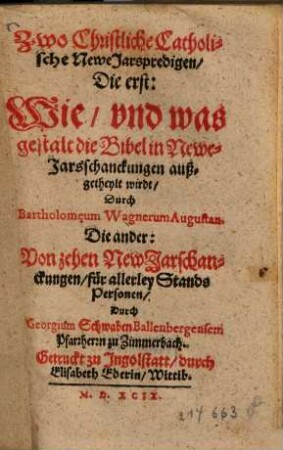 Zwo Christliche Catholi-
sche NeweJarspredigen/
Die erst:
Wie/ vnd was
gestalt die Bibel in Newe-
Jarsschanckungen auß-
getheylt wirdt/
Durch
Bartholomęum Wagnerum Augustan.
Die ander:
Von zehen New Jarschan-
ckungen/ für allerley Stands
Personen/
Durch
Georgium Schwaben Ballenbergensem
Pfarrherrn zu Zimmerbach.
Getruckt zu Ingolstatt/ durch
Elisabeth Ederin/ Wittib.
M. D. XCIX.
214 663